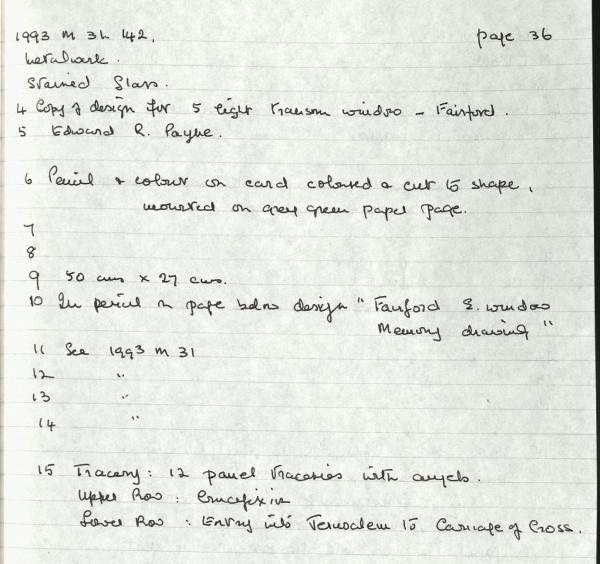 1993 M 31 142. page 36
Metalwork.
Stained Glass.
4 Copy of design for 5 light transom window - Fairford.
5 Edward R. Payne.
6 Pencil & colour on card coloured & cut to shape,
mounted on grey green paper page.
7
8
9 50 cms x 27 cms.
10 In pencil on page below design "Fairford E. window
Memory drawing"
11 See 1993 M 31
12 "
13 "
14 "
15 Tracery: 12 panel traceries with angels.
Upper Row : Crucifixion
Lower Row : Entry into Jerusalem to Carriage of Cross.